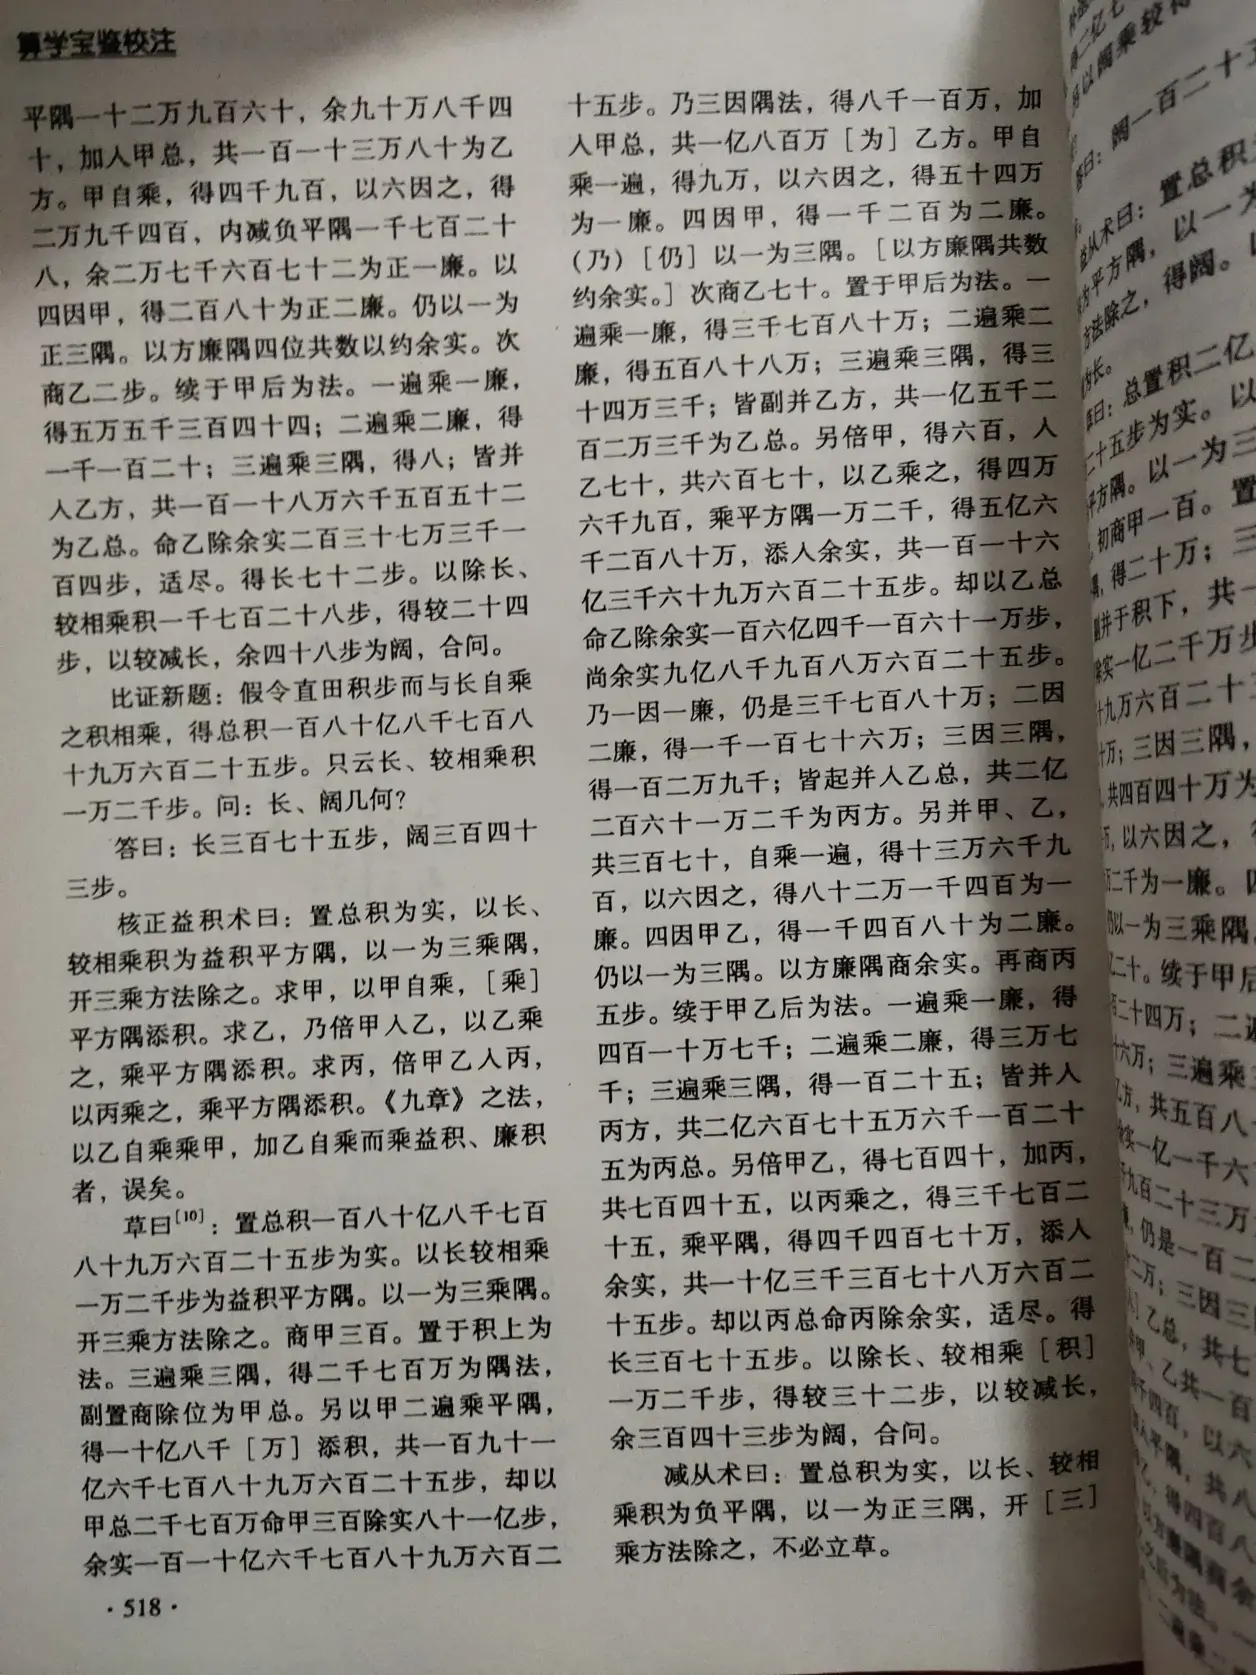 算学宝鉴校注
平隅一十二万九百六十，余九十万八千四
十，加人甲总，共一百一十三万八十为乙
方。甲自乘，得四千九百，以六因之，得
二万九千四百，内减负平隅一千七百二十
八，余二万七千六百七十二为正一廉。以
四因甲，得二百八十为正二廉。仍以一为
正三隅。以方廉隅四位共数以约余实。次
商乙二步。续于甲后为法。一遍乘一廉，
得五万五千三百四十四；二遍乘二廉，得
一千一百二十；三遍乘三隅，得八；皆并
人乙方，共一百一十八万六千五百五十二
为乙总。命乙除余实二百三十七万三千一
百四步，适尽。得长七十二步。以除长、
较相乘积一千七百二十八步，得较二十四
步，以较减长，余四十八步为阔，合问。
比证新题：假令直田积步而与长自乘
之积相乘，得总积一百八十亿八千七百八
十九万六百二十五步。只云长、较相乘积
一万二千步。问：长、阔几何？
答曰：长三百七十五步，阔三百四十
三步。
核正益积术曰：置总积为实，以长、
较相乘积为益积平方隅，以一为三乘隅，
开三乘方法除之。求甲，以甲自乘，［乘］
平方隅添积。求乙，乃倍甲人乙，以乙乘
之，乘平方隅添积。求丙，倍甲乙人丙，
以丙乘之，乘平方隅添积。《九章》之法，
以乙自乘乘甲，加乙自乘而乘益积、廉积
者，误矣。
草曰[10]：置总积一百八十亿八千七百
八十九万六百二十五步为实。以长较相乘
一万二千步为益积平方隅。以一为三乘隅。
开三乘方法除之。商甲三百。置于积上为
法。三遍乘三隅，得二千七百万为隅法，
副置商除位为甲总。另以甲二遍乘平隅，
得一十亿八千［万］添积，共一百九十一
亿六千七百八十九万六百二十五步，却以
甲总二千七百万命甲三百除实八十一亿步，
余实一百一十亿六千七百八十九万六百二
十五步。乃三因隅法，得八千一百万，加
人甲总，共一亿八百万［为］乙方。甲自
乘一遍，得九万，以六因之，得五十四万
为一廉。四因甲，得一千二百为二廉。
（乃）［仍］以一为三隅。［以方廉隅共数
约余实。］次商乙七十。置于甲后为法。一
遍乘一廉，得三千七百八十万；二遍乘二
廉，得五百八十八万；三遍乘三隅，得三
十四万三千；皆副并乙方，共一亿五千二
百二万三千为乙总。另倍甲，得六百，人
乙七十，共六百七十，以乙乘之，得四万
六千九百，乘平方隅一万二千，得五亿六
千二百八十万，添人余实，共一百一十六
亿三千六十九万六百二十五步。却以乙总
命乙除余实一百六亿四千一百六十一万步，
尚余实九亿八千九百八万六百二十五步。
乃一因一廉，仍是三千七百八十万；二因
二廉，得一千一百七十六万；三因三隅，
得一百二万九千；皆起并人乙总，共二亿
二百六十一万二千为丙方。另并甲、乙，
共三百七十，自乘一遍，得十三万六千九
百，以六因之，得八十二万一千四百为一
廉。四因甲乙，得一千四百八十为二廉。
仍以一为三隅。以方廉隅商余实。再商丙
五步。续于甲乙后为法。一遍乘一廉，得
四百一十万七千；二遍乘二廉，得三万七
千；三遍乘三隅，得一百二十五；皆并人
丙方，共二亿六百七十五万六千一百二十
五为丙总。另倍甲乙，得七百四十，加丙，
共七百四十五，以丙乘之，得三千七百二
十五，乘平隅，得四千四百七十万，添人
余实，共一十亿三千三百七十八万六百二
十五步。却以丙总命丙除余实，适尽。得
长三百七十五步。以除长、较相乘［积］
一万二千步，得较三十二步，以较减长，
余三百四十三步为阔，合问。
减从术曰：置总积为实，以长、较相
乘积为负平隅，以一为正三隅，开［三］
乘方法除之，不必立草。
·518·